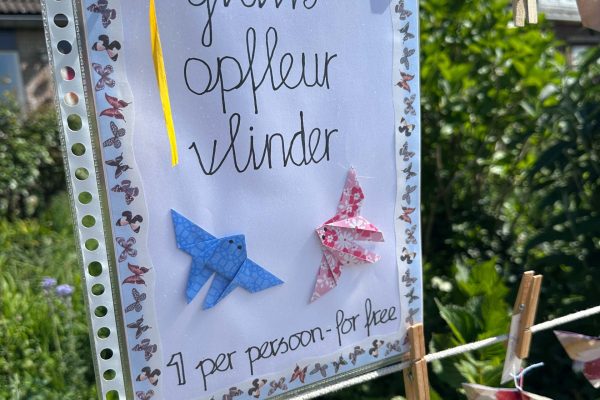 opfleur
vlinder
1 per persoon - for free